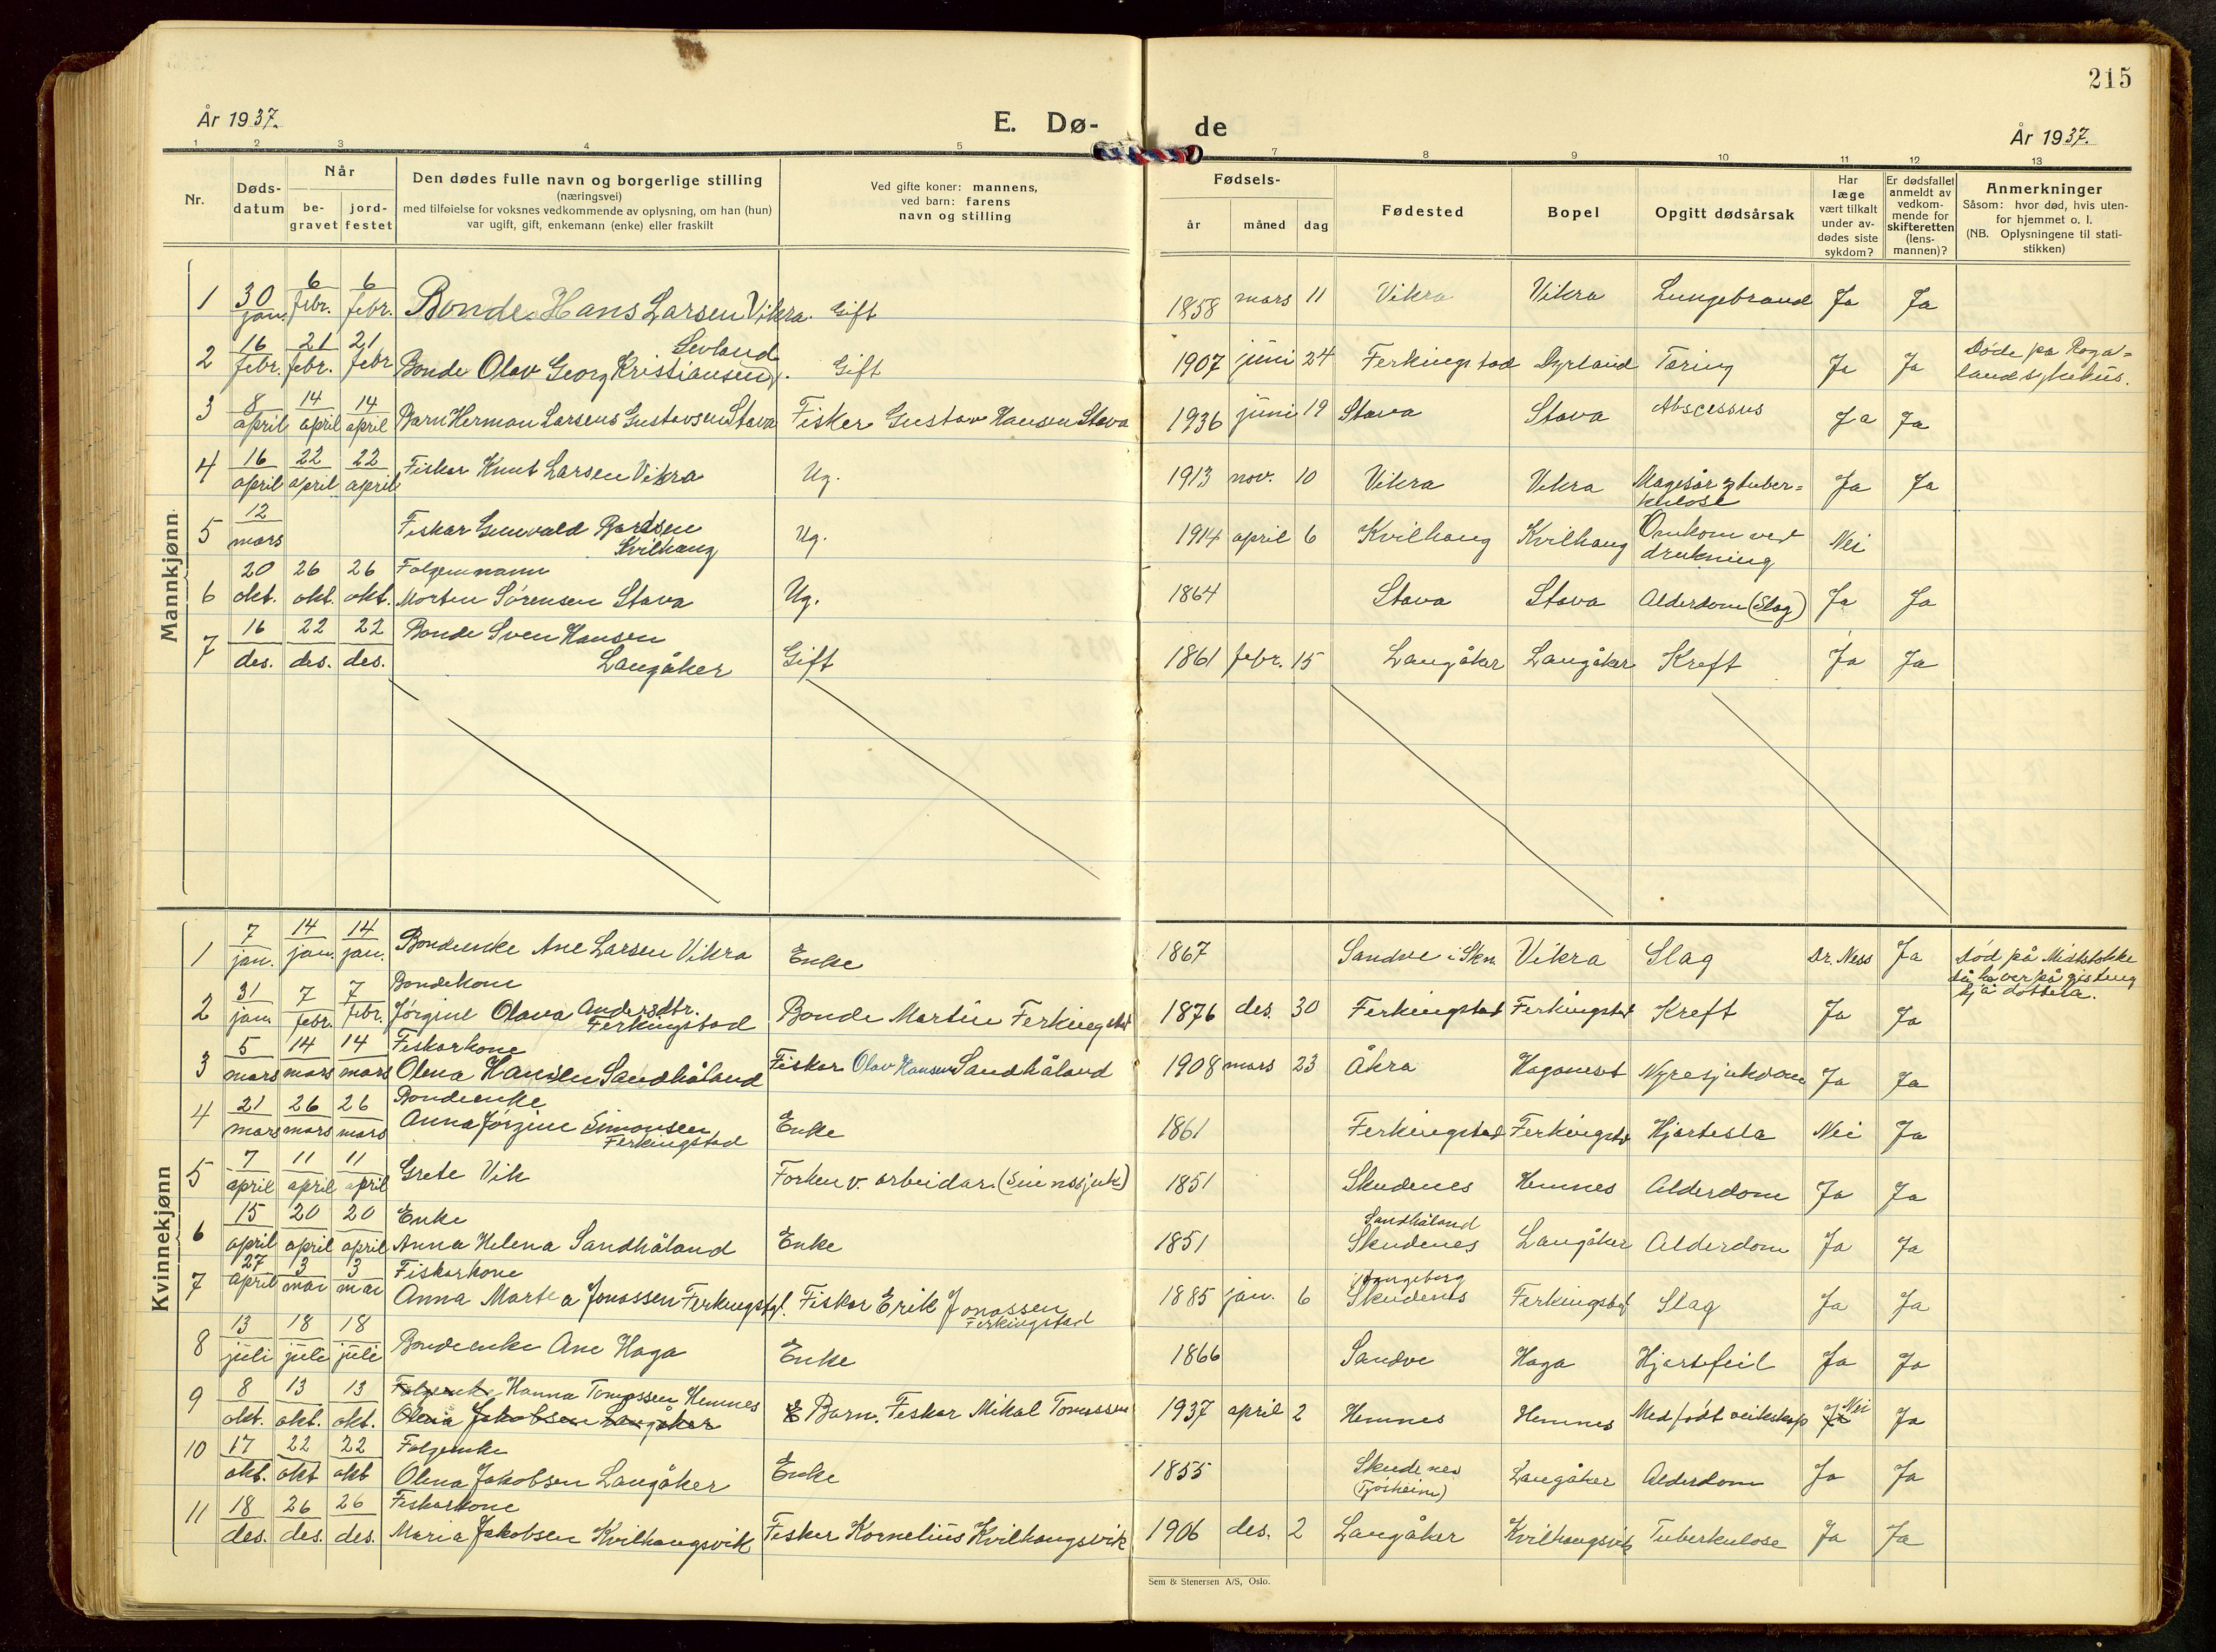 215
År 1937.
E. Dø-
de
År 1937.
1 2 3 4 5 7 8 9 10 11 12 13
Nr.
Døds-
datum
Når
be-
gravet
jord-
festet
Den dødes fulle navn og borgerlige stilling
(næringsvei)
med tilføielse for voksnes vedkommende av oplysning, om han (hun)
var ugift, gift, enkemann (enke) eller fraskilt
Ved gifte koner: mannens,
ved barn: farens
navn og stilling
Fødsels-
år måned dag
Fødested
Bopel
Opgitt dødsårsak
Har
læge
vært tilkalt
under av-
dødes siste
sykdom?
Er dødsfallet
anmeldt av
vedkom-
mende for
skifteretten
(lens-
mannen)?
Anmerkninger
Såsom: hvor død, hvis uten-
for hjemmet o. l.
(NB. Oplysningene til stati-
stikken)
Mannkjønn
1 30 jan. 6 febr. 6 febr. Bonde Hans Larsen Vikra. Gift 1858 mars 11 Vikra Vikra Lungebrand Ja Ja
2 16 febr. 21 febr. 21 febr Bonde Olav Georg Kristiansen Gift 1907 juni 24 Ferkingstad Tæring Ja Ja Døde på Roga=
landsykehus.
3 8 april 14 april 14 april Barn Herman Larsens Gustavsen Stava Fisker Gustav Hansen Stava 1936 juni 19 Stava Stava Abscessus Ja Ja
4 16 april 22 april 22 april Fiskar Knut Larsen Vikra Ug. 1913 nov. 10 Vikra Vikra Magesår tuber=
kulose Ja Ja
5 12 mars Fiskar Gunvald Bårdsen
Kvilhaug Ug. 1914 april 6 Kvilhaug Kvilhaug Omkom ved
drukning Nei
6 20 okt. 26 okt. 26 okt. Folgemann
Morten Sørensen Stava Ug. 1864 Stava Stava Alderdom (Slag) Ja Ja
7 16 des. 22 des. 22 des. Bonde Sven Hansen
Langåker Gift 1861 febr. 15 Langåker Langåker Kreft Ja Ja
Kvinnekjønn
1 7 jan. 14 jan. 14 jan. Bondeenke Ane Larsen Vikra Enke 1867 Sandve i Skn. Vikra Slag Dr. Ness Ja
2 31 jan. 7 febr. 7 febr. Bondekone
Jørgine Olava Andersdtr.
Ferkingstad Bonde Martin Ferkingstad 1876 des. 30 Ferkingstad Ferkingstad Kreft Ja Ja
3 5 mars 14 mars 14 mars Fiskarkone
Olena Hansen Sandhåland Fiskar Olav Hansen Sandhåland 1908 mars 23 Åkra Haganest Nyresjukdom Ja Ja
4 21 mars 26 mars 26 mars Bondeenke
Anna Jørgine Simonsen
Ferkingstad Enke 1861 Ferkingstad Ferkingstad Hjarteslа Nei Ja
5 7 april 11 april 11 april Grete Vik Forhen v. arbeidar. (Sinnssjuk) 1851 Skudenes Hemnes Alderdom Ja Ja
6 15 april 20 april 20 april Enke
Anna Helena Sandhåland Enke 1851 Sandhåland
Skudenes Langåker Alderdom Ja Ja
7 27 april 3 mai 3 mai Fiskarkone
Anna Martea Jonassen Ferkingst. Fiskar Erik Jonassen
Ferkingstad 1885 jan. 6 Skudenes Ferkingstad Slag Ja Ja
8 13 juli 18 juli 18 juli Bondeenke Ane Haga Enke 1866 Sandve Haga Hjartefeil Ja Ja
9 8 okt. 13 okt. 13 okt. Folgeenke Hanna Tomassen Hemnes
Olena Jakobsen Langåker Barn. Fiskar Mikal Tomassen 1937 april 2 Hemnes Hemnes Medfødt veikskap Ja Nei Ja
10 17 okt. 22 okt 22 okt Folgeenke
Olena Jakobsen Langåker Enke 1855 Skudenes
(Tjøsheim) Langåker Alderdom Ja Ja
11 18 des. 26 des. 26 des. Fiskarkone
Maria Jakobsen Kvilhaugsvik Fisker Kornelius Kvilhaugsvik 1906 des. 2 Langåker Kvilhaugsvik Tuberkulose Ja Ja
Sem & Stenersen A/S, Oslo.